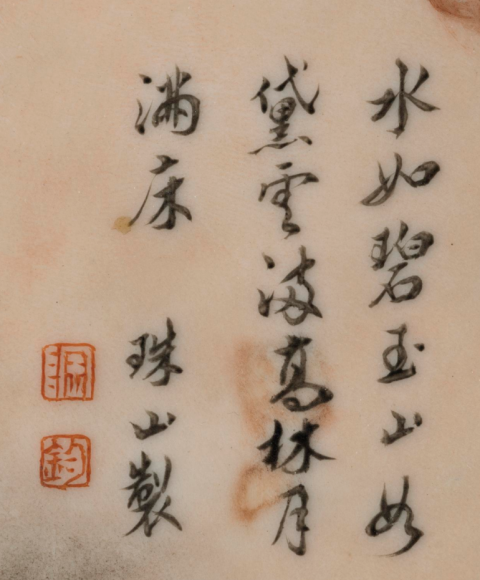 水如碧玉山如
黛雲高林月
滿床 珠山製
鈞